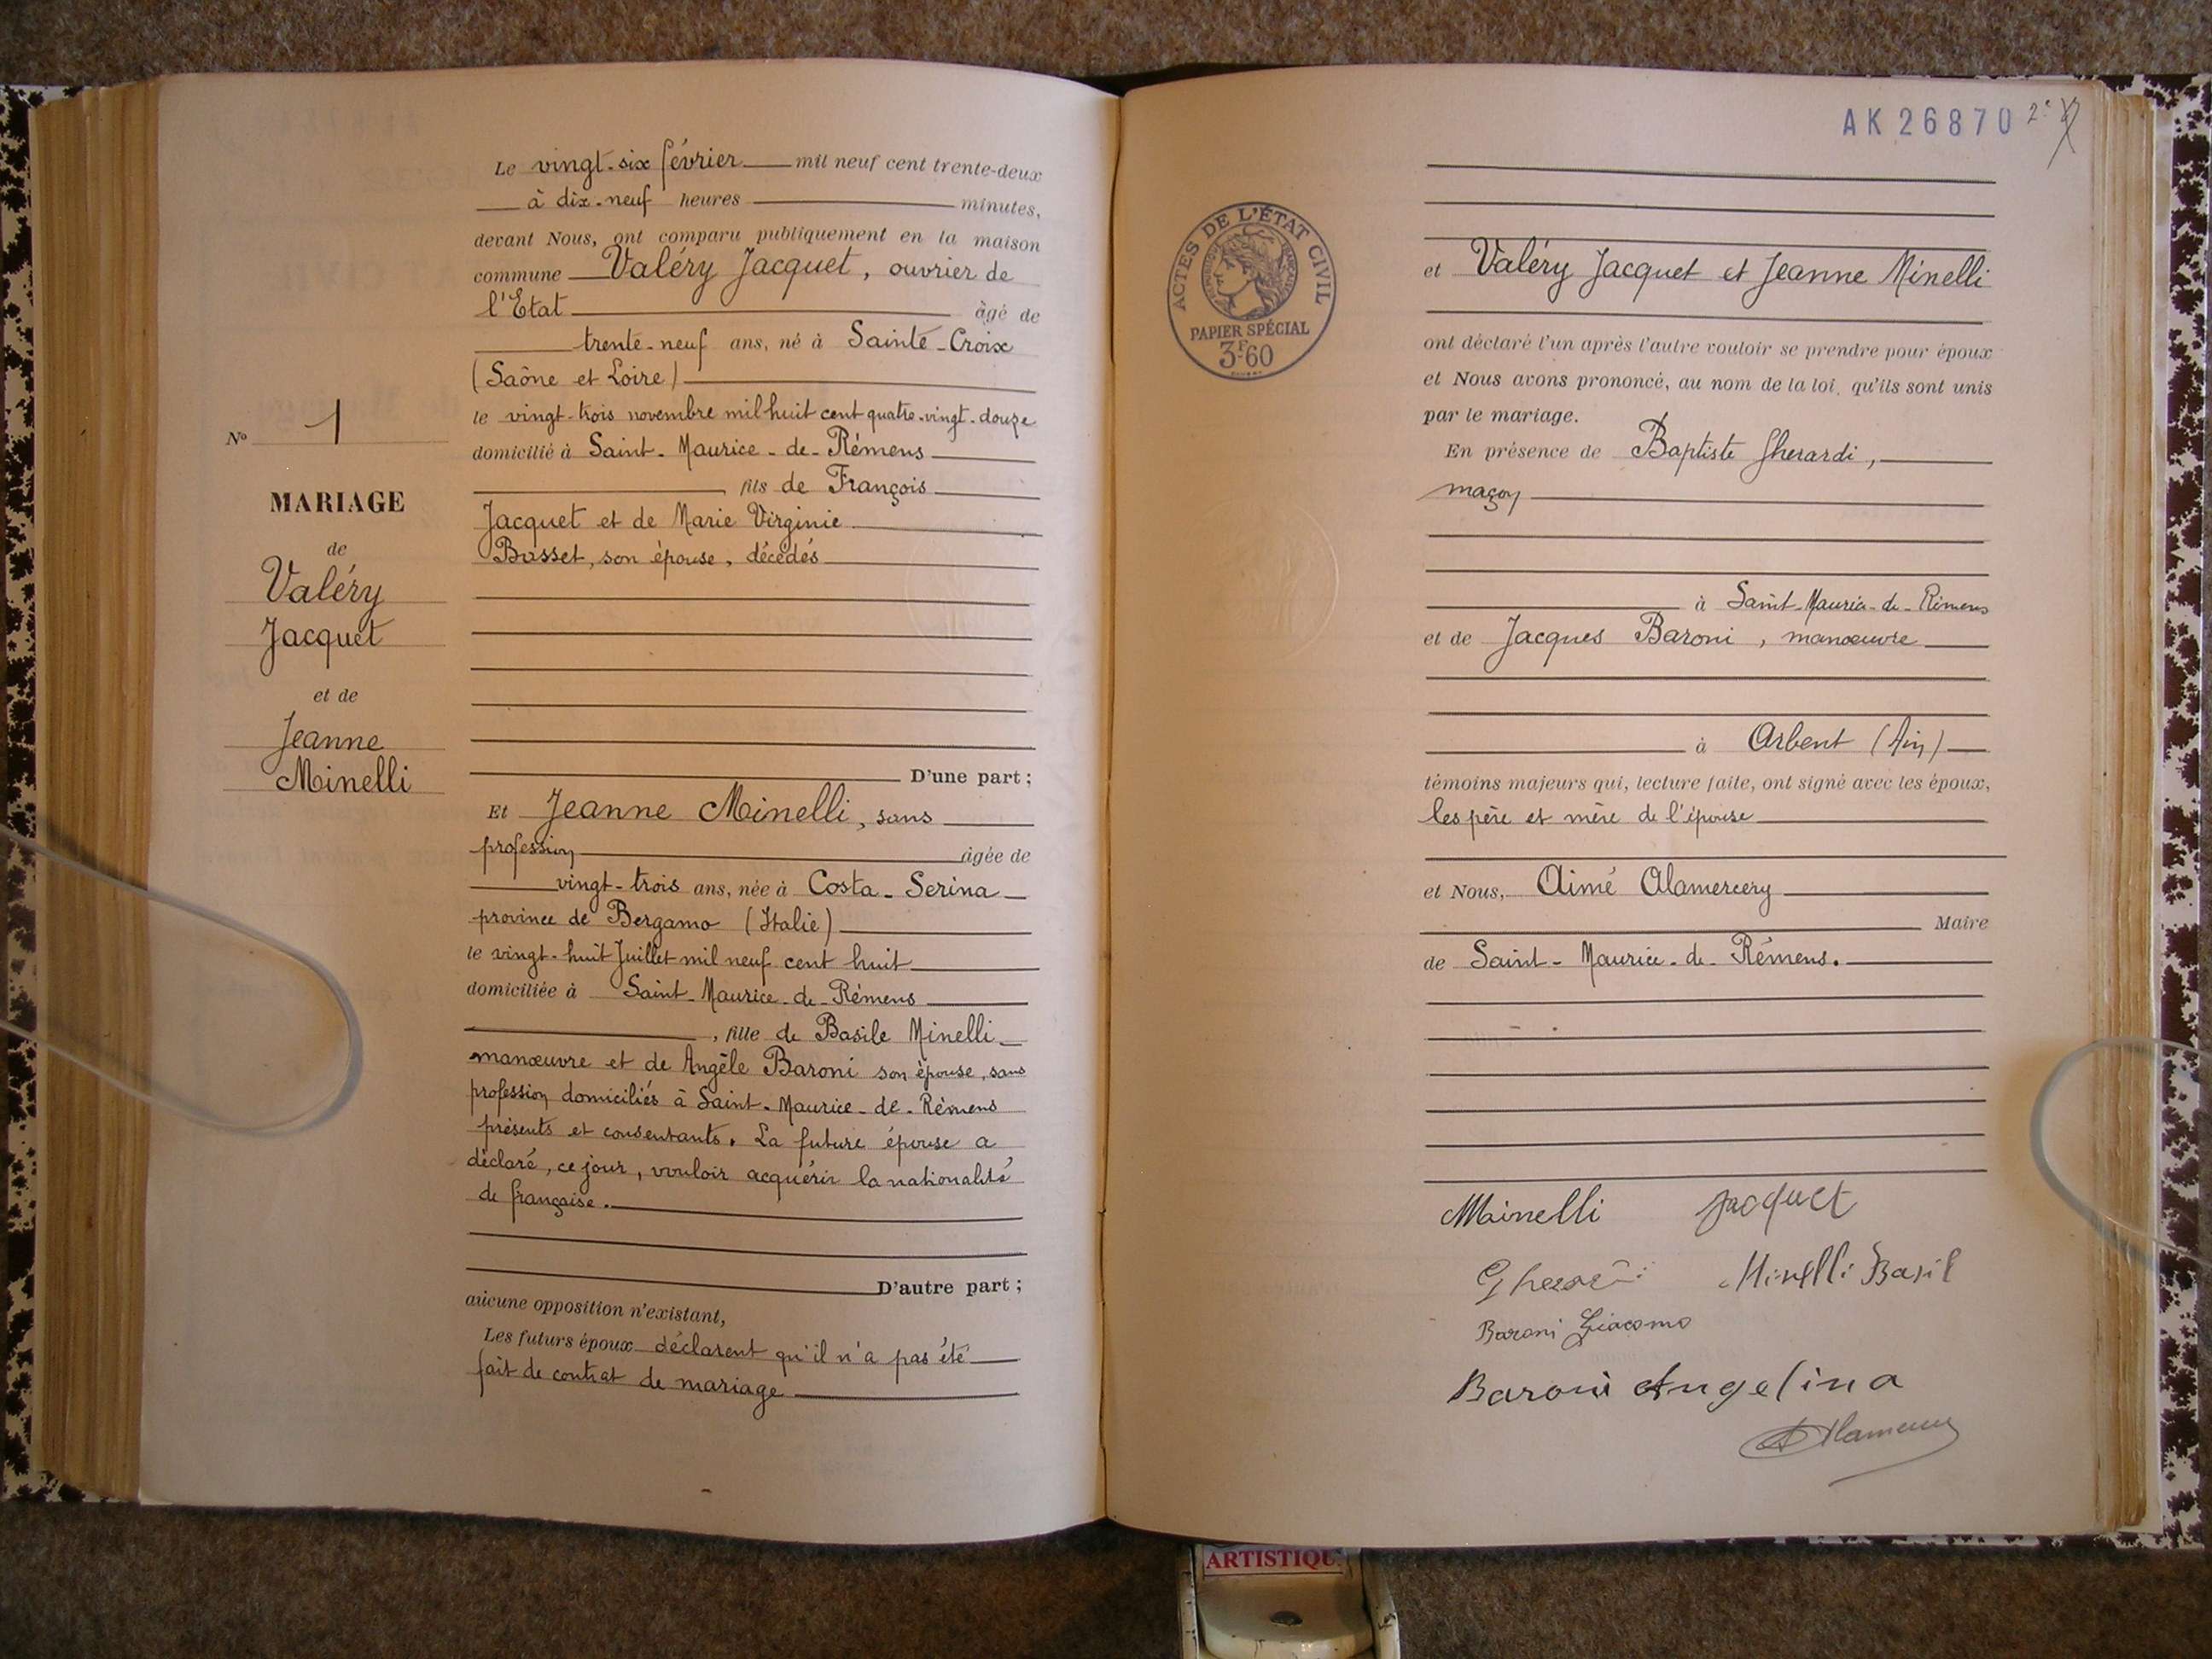 Le vingt-six février mil neuf cent trente-deux
à dix-neuf heures minutes,
devant Nous, ont comparu publiquement en la maison
commune Valéry Jacquet, ouvrier de
l'Etat âgé de
trente-neuf ans, né à Sainte-Croix
(Saône et Loire)
le vingt-trois novembre mil huit cent quatre-vingt-douze
domicilié à Saint-Maurice-de-Rémens
fils de François
Jacquet et de Marie Virginie
Bosset, son épouse, décédés
D'une part ;
Et Jeanne Minelli, sans
profession âgée de
vingt-trois ans, née à Costa-Serina
province de Bergamo (Italie)
le vingt-huit Juillet mil neuf cent huit
domiciliée à Saint-Maurice-de-Rémens
, fille de Basile Minelli
manœuvre et de Angèle Baroni son épouse, sans
profession domiciliés à Saint-Maurice-de-Rémens
présents et consentants. La future épouse a
déclaré, ce jour, vouloir acquérir la nationalité
de française.
D'autre part ;
aucune opposition n'existant,
Les futurs époux déclarent qu'il n'a pas été
fait de contrat de mariage
N° 1
MARIAGE
de
Valéry
Jacquet
et de
Jeanne
Minelli
AK 26870
ACTES DE L'ÉTAT CIVIL
PAPIER SPÉCIAL
3F60
et Valéry Jacquet et Jeanne Minelli
ont déclaré l'un après l'autre vouloir se prendre pour époux
et Nous avons prononcé, au nom de la loi, qu'ils sont unis
par le mariage.
En présence de Baptiste Gherardi,
maçon
à Saint-Maurice-de-Rémens
et de Jacques Baroni, manœuvre
à Arbent (Ain)
témoins majeurs qui, lecture faite, ont signé avec les époux,
les père et mère de l'épouse
et Nous, Aimé Alamercery
Maire
de Saint-Maurice-de-Rémens.
Minelli Jacquet
Minelli Basil
Baroni Giacomo
Baroni Angelina
ARTISTIQU